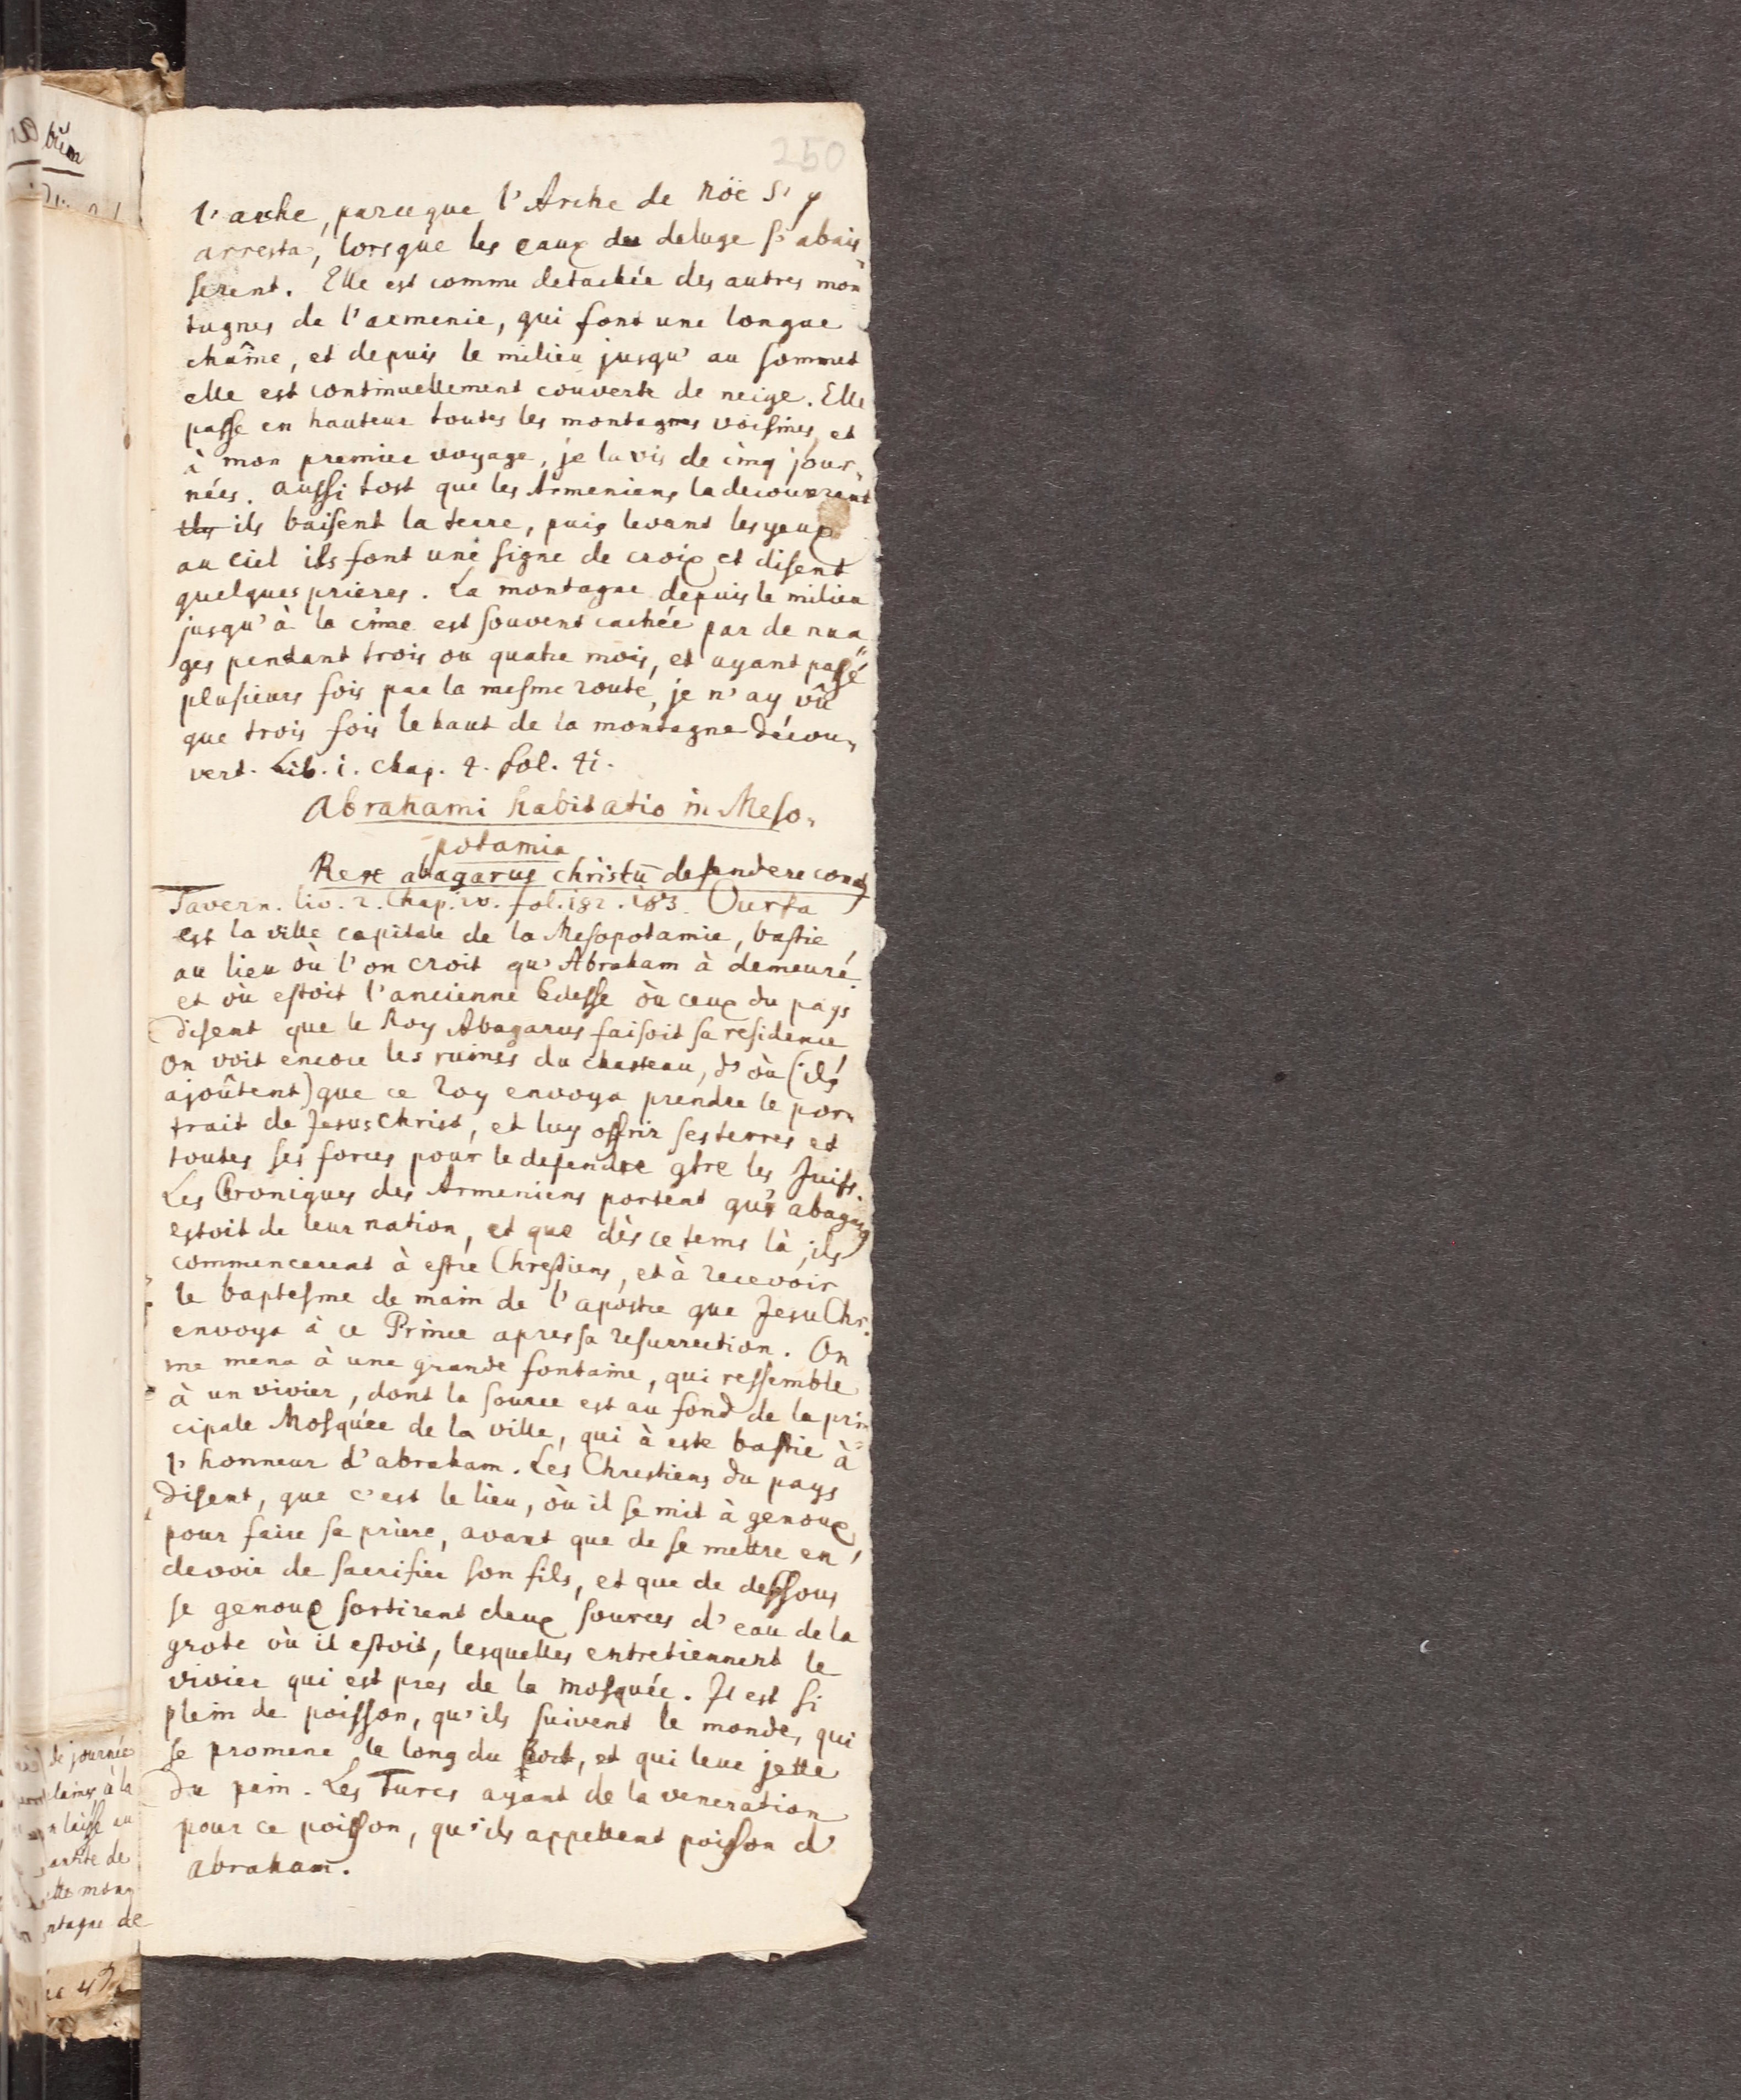 250
l'arche, parceque l'Arche de Nöe s'y
arresta, lorsque les eaux du deluge s'abais„
serent. Elle est comme detachée des autres mon„
tagnes de l'armenie, qui font une longue
chaîne, et depuis le milieu jusqu'au sommet
elle est continuellement couverte de neige. Elle
passe en hauteur toutes les montagnes voisines, et
à mon premier voyage, je la vis de cinq jour„
nées. aussi tost que les Armeniens la decouvrent
ils baisent la terre, puis levant les yeux
au ciel ils font une signe de croix et disent
quelques prieres. La montagne depuis le milieu
jusqu'à la cime est souvent cachée par de nua„
ges pendant trois ou quatre mois, et ayant passé
plusieurs fois par la mesme route, je n'ay vû
que trois fois le haut de la montagne décou„
vert. Lib. i. chap. 4. fol. 4i.
Abrahami habitatio in Meso„
potamia
Rex abagarus christū defendere cona
Tavern. liv. 2. Chap. iv. fol. i82. i83. Ourfa
est la ville capitale de la Mesopotamie, bastie
au lieu où l'on croit qu'Abraham à demeuré
et où estoit l'ancienne Edesse où ceux du pays
disent que le Roy Abagarus faisoit sa residence
On voit encore les ruines du chasteau, d'où (ils
ajoûtent) que ce Roy envoya prendre le por„
trait de Jesus Christ, et luy offrir ses terres et
toutes ses forces pour le defendre gtre les Juifs.
Les Croniques des Armeniens portent qu' abagarus
estoit de leur nation, et que dès ce tems là, ils
commencerent à estre Chrestiens, et à recevoir
le baptesme de main de l'apostre que Jesu Chr.
envoya à ce Prince apres sa resurrection. On
me mena à une grande fontaine, qui ressemble
à un vivier, dont la source est au fond de la prin
cipale Mosquée de la ville, qui à este bastie à
l'honneur d'abraham. Les Chrestiens du pays
disent, que c'est le lieu, où il se mit à genoux
pour faire sa priere, avant que de se mettre en
devoir de sacrifier son fils, et que de dessous
se genoux sortirent deux sources d'eau de la
grote où il estoit, lesquelles entretiennent le
vivier qui est pres de la mosquée. Il est si
plein de poisson, qu'ils suivent le monde, qui
se promene le long du bord, et qui leur jette
du pain. Les Turcs ayant de la veneration
pour ce poisson, qu'ils appellent poisson d'
abraham.
de journée
à la
laisse au
de
ntagne de